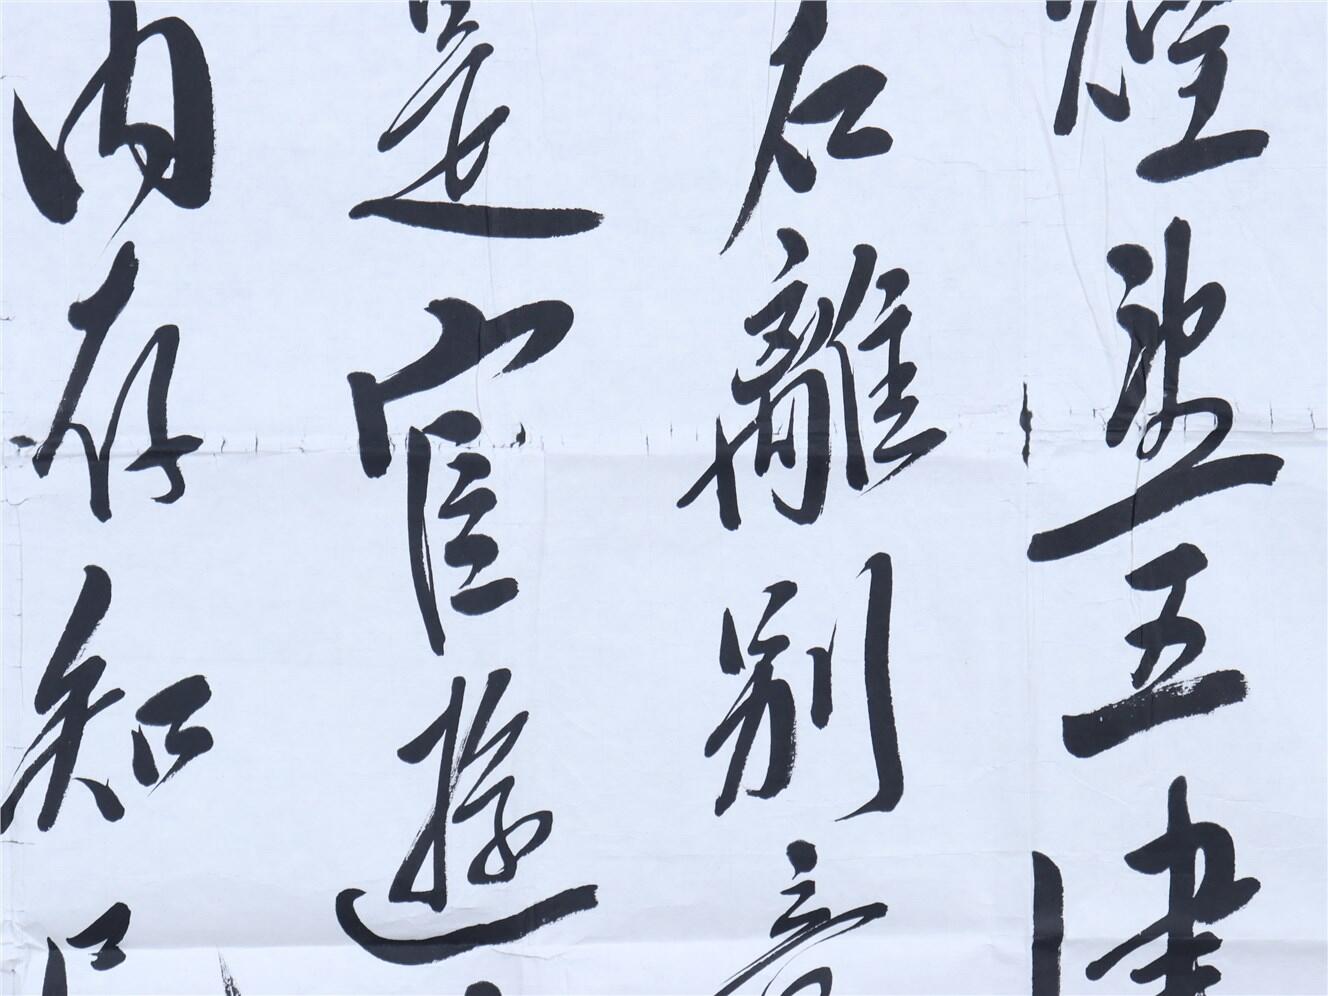 煙望五津
君離別意
是宦遊
內存知己